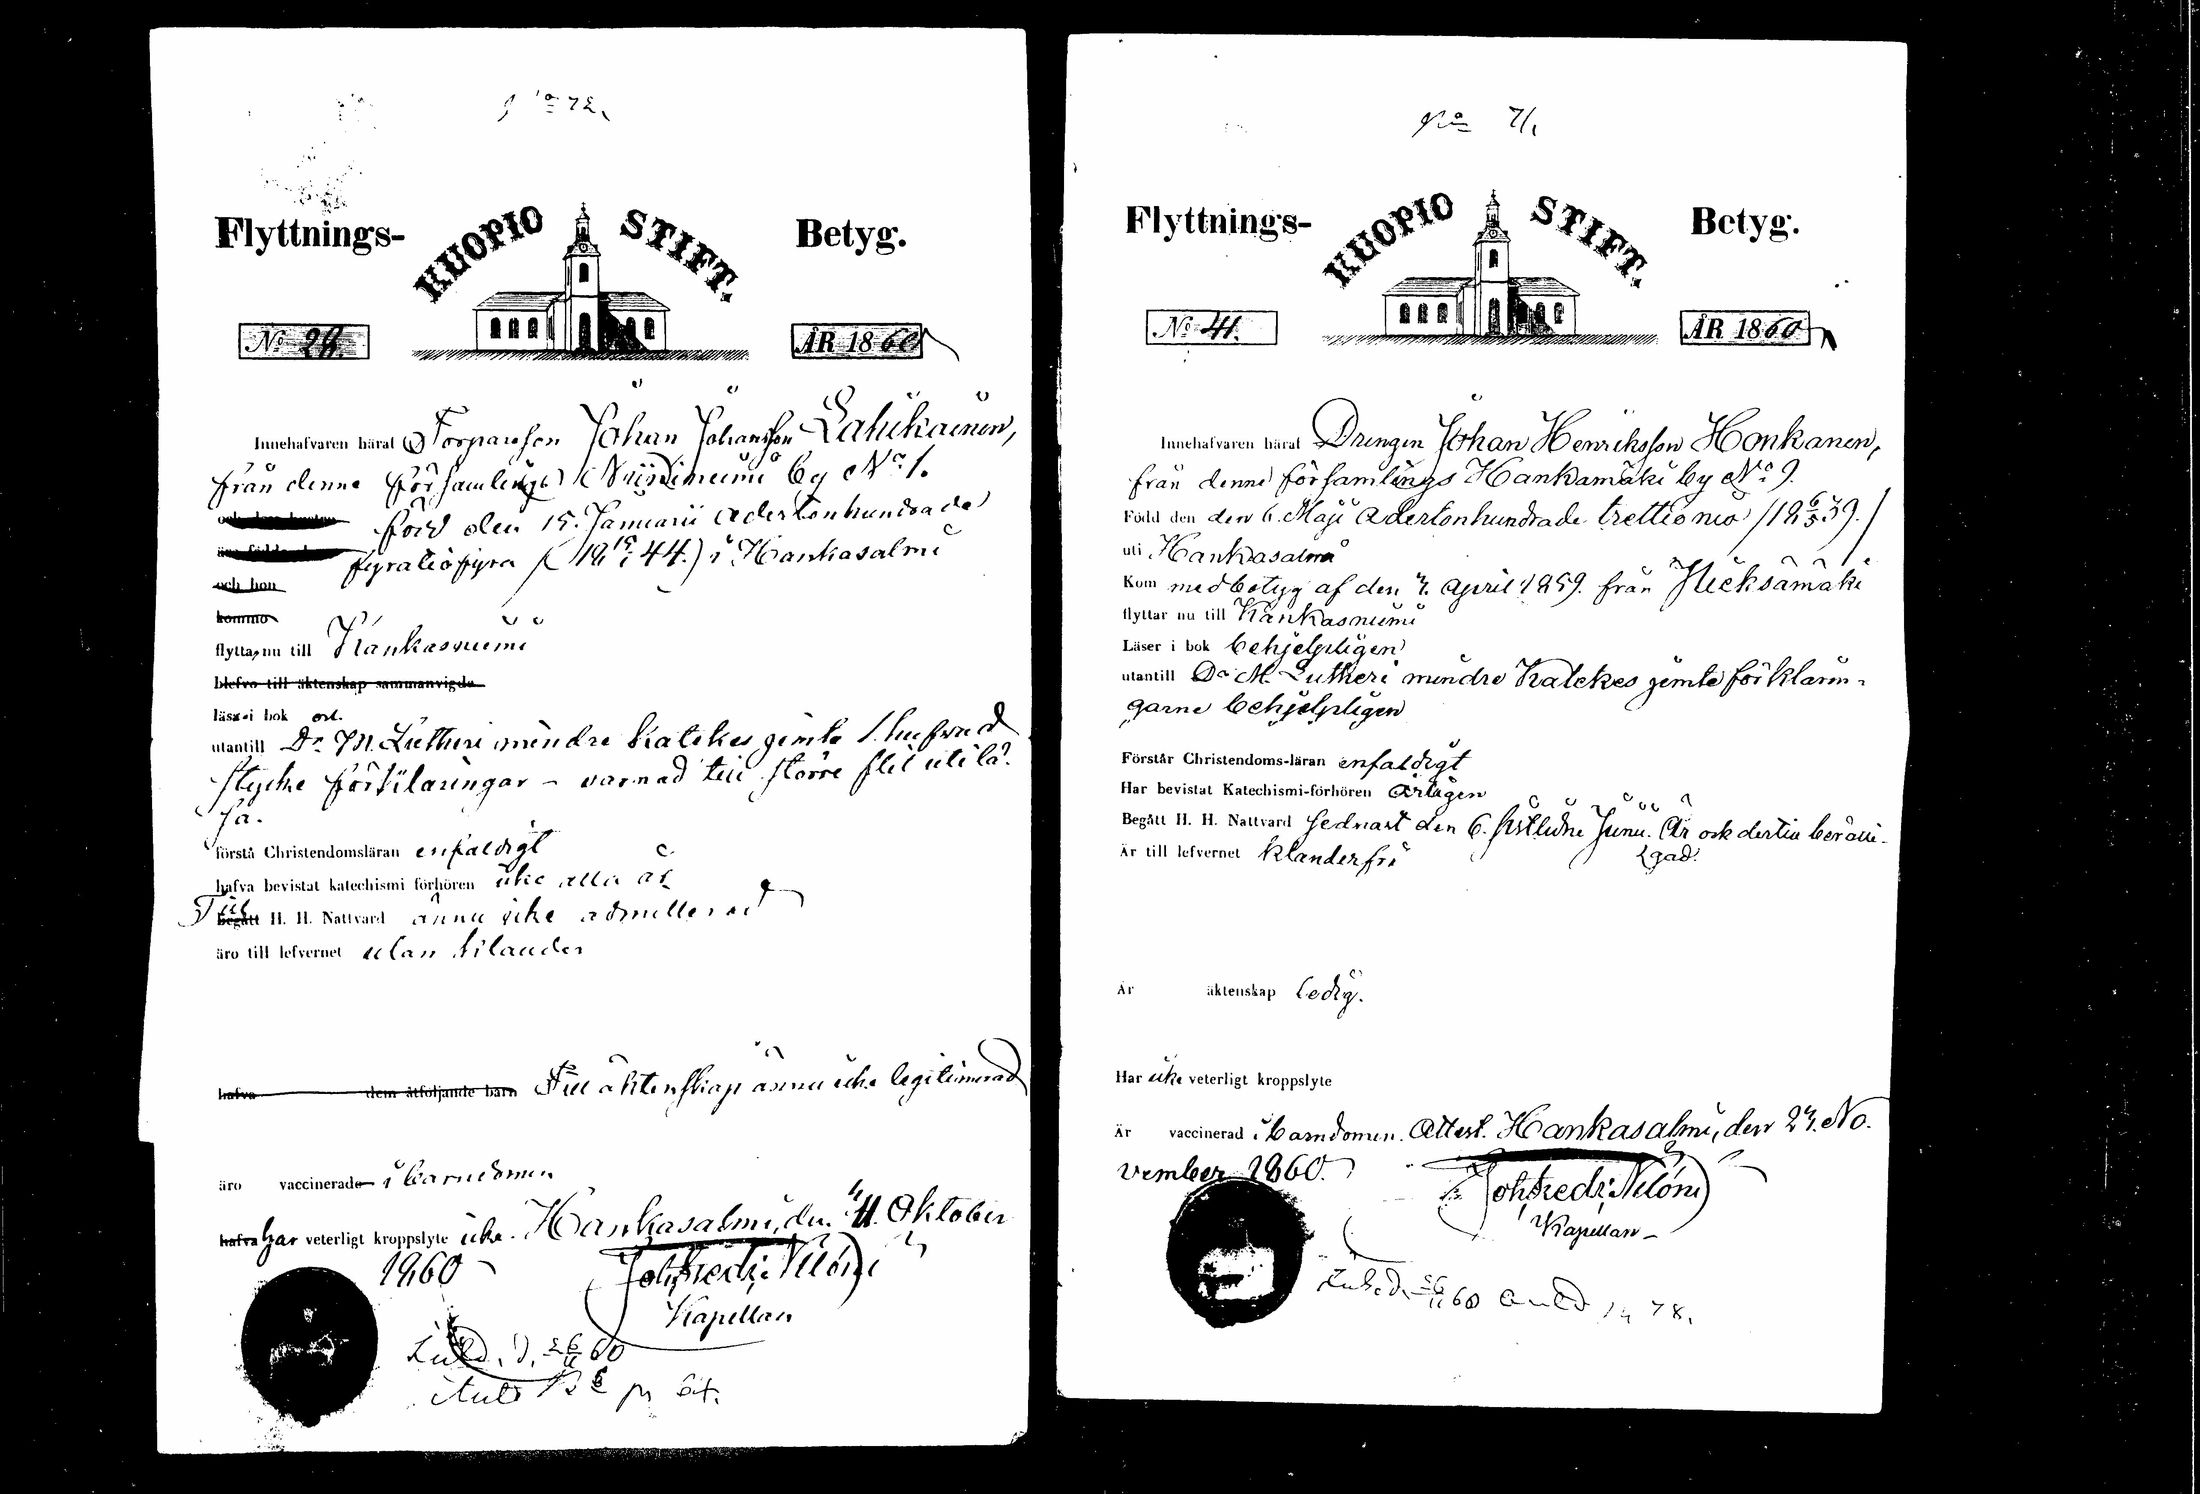 No 72.
Flyttnings- KUOPIO STIFT. Betyg.
No 29. ÅR 1860
Innehafvaren härat Torparson Johan Johansson Lahikainen,
från denne församlings Niinimeimi by No 1.
och dess hustru född den 15. Januarii adertonhundrade
fyratiofyra (18 15/1 44.) i Hankasalmi
och hon
kommo
flytta nu till Kankasniemi
blefvo till äktenskap sammanvigde
läsa i bok ord.
utantill Dr M. Lutheri mindre katekes jemte 1. hufvud
stycke förklaringar - varnad till större flit uti lä-
sa.
förstå Christendomsläran enfaldigt
hafva bevistat katechismi förhören icke alla år
Till Begått H. H. Nattvard ännu icke admitterad
äro till lefvernet utan klander
hafva dem åtföljande barn Till äktenskap ännu icke legitimerad
äro vaccinerade i barndomen
hafva har veterligt kroppslyte icke. Hankasalmi, den 11. Oktober
1860
Joh. Fredr. Nilóni
Kapellan
Inl. d. 26/11 60
No 71.
Flyttnings- KUOPIO STIFT. Betyg.
No 41. ÅR 1860
Innehafvaren härat Drengen Johan Henriksson Honkanen,
från denne församlings Hankamäki by No 9.
Född den den 6. Maji adertonhundrade trettionio /18 6/5 39./
uti Hankasalmi
Kom med betyg af den 7. April 1859. från Jäcksämäki
flyttar nu till Kankasniemi
Läser i bok behjelpligen
utantill Dr M. Lutheri mindre Katekes jemte förklarin-
garne behjelpligen
Förstår Christendoms-läran enfaldigt
Har bevistat Katechismi-förhören årligen
Begått H. H. Nattvard sednast den 6. sistlidne Junii. Är ock dertill berätti-
gad.
Är till lefvernet klanderfri
Är äktenskap ledig.
Har icke veterligt kroppslyte
Är vaccinerad i barndomen. Attest. Hankasalmi, den 23. No-
vember 1860.
Joh. Fredr. Nilóni
Kapellan
Inl. d. 26/11 60